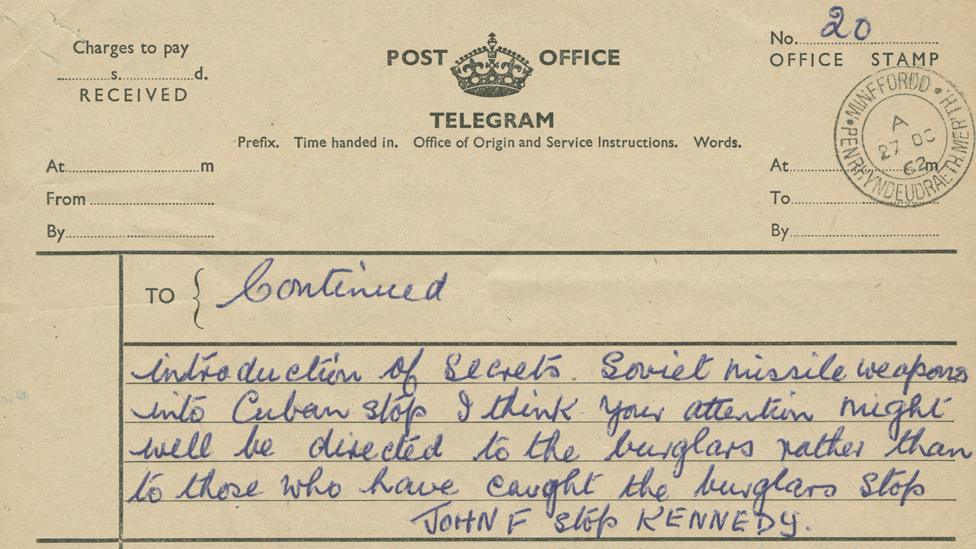 Charges to pay
s. d.
RECEIVED
POST OFFICE
TELEGRAM
Prefix. Time handed in. Office of Origin and Service Instructions. Words.
No. 20
OFFICE STAMP
MINFFORDD · PENRHYNDEUDRAETH MERTH.
A
27 OC
62
At m
From
By
At m
To
By
TO { Continued
introduction of secrets. Soviet missile weapons
into Cuban stop I think your attention might
well be directed to the burglars rather than
to those who have caught the burglars stop
JOHN F stop KENNEDY.